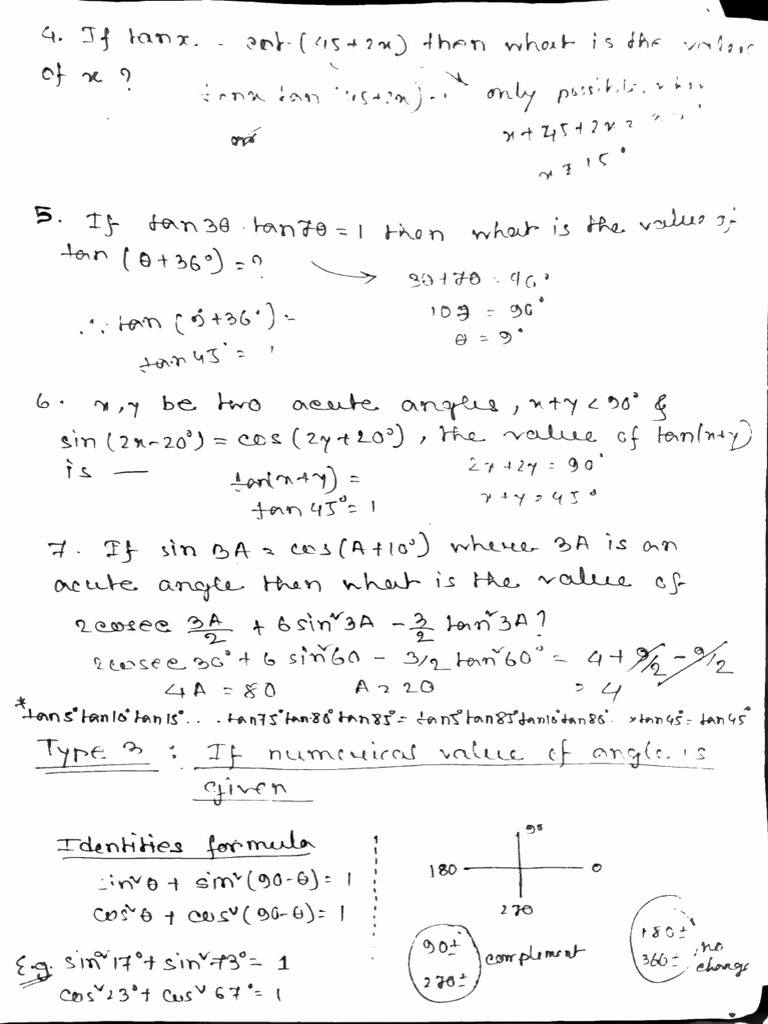 4. If tanx = cot (45+2x) then what is the value
of x ?
tanx tan (45+2x) = 1 only possible when
x+45+2x =
x = 15°
5. If tan3θ . tan7θ = 1 then what is the value of
tan (θ+36°) = ?
3θ+7θ = 90°
10θ = 90°
θ = 9°
∴ tan (9°+36°) =
tan 45° = 1
6. x, y be two acute angles, x+y < 90° &
sin (2x-20°) = cos (2y+20°), the value of tan(x+y)
is —
2x+2y = 90°
x+y = 45°
tan(x+y) =
tan 45° = 1
7. If sin 3A = cos(A+10°) where 3A is an
acute angle then what is the value of
2cosec 3A/2 + 6 sin²3A - 3/2 tan²3A ?
2cosec 30° + 6 sin²60 - 3/2 tan²60° = 4 + 9/2 - 9/2
4A = 80 A = 20 = 4
*tan5°tan10°tan15°... tan75°tan80°tan85° = tan5°tan85°tan10°tan80° × tan45° = tan45°
Type 3 : If numerical value of angle is
given
Identities formula
sin²θ + sin²(90-θ) = 1
cos²θ + cos²(90-θ) = 1
E.g. sin²17° + sin²73° = 1
cos²23° + cos²67° = 1
90
180 0
270
90±
270±
complement
180±
360±
no
change